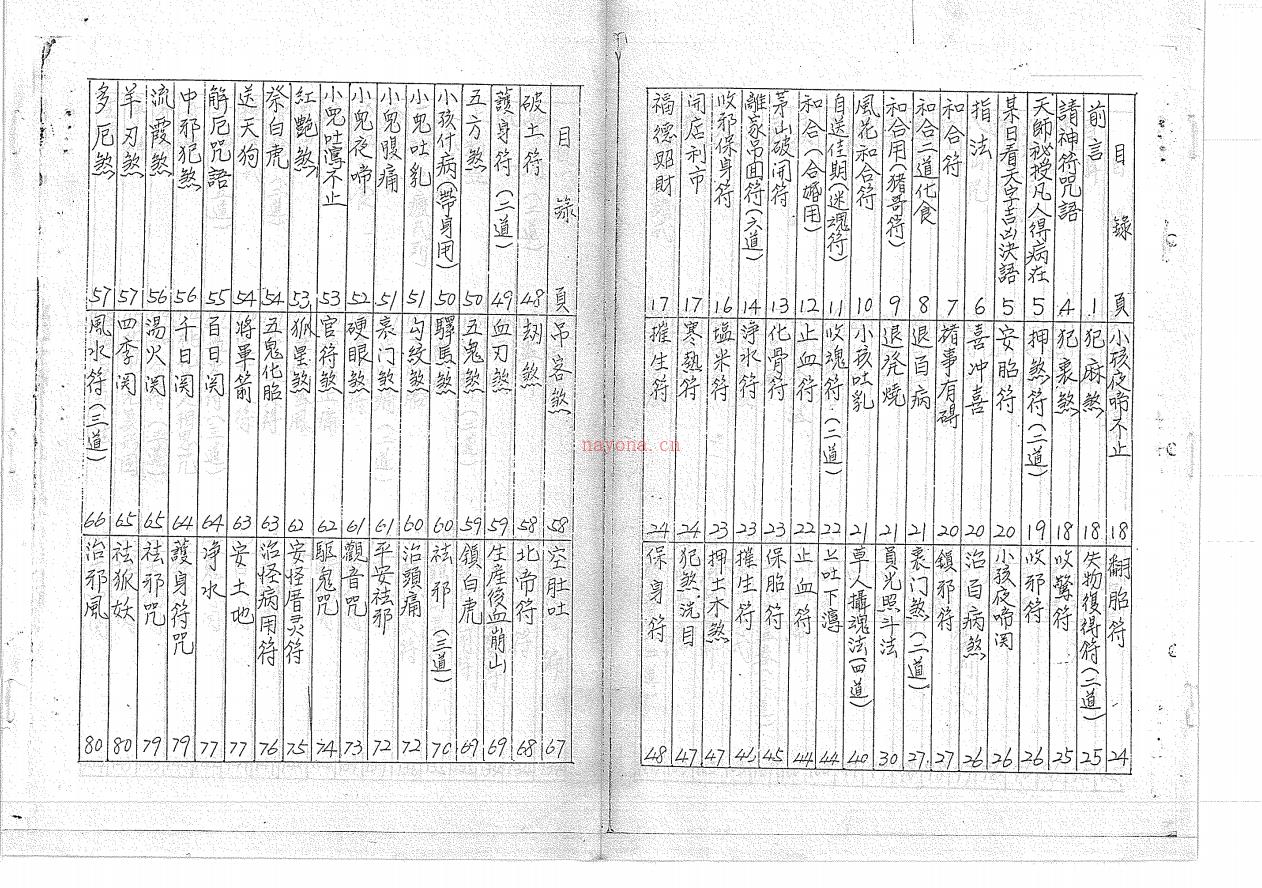 目錄 頁
前言 1
請神符咒語 4
天師祕授凡人得病在 5
某日看天字吉凶決語 5
指法 6
和合符 7
和合二道化食 8
和合用(猪哥符) 9
風花和合符 10
自送佳期(迷魂符) 11
和合(合婚用) 12
茅山破開符 13
離家吊回符(六道) 14
收邪保身符 16
開店利市 17
福德昭財 17
小孩夜啼不止 18
犯麻煞 18
犯喪煞 18
押煞符(二道) 19
安胎符 20
喜冲喜 20
諸事有碍 20
退百病 21
退発燒 21
小孩吐乳 21
收魂符(二道) 22
止血符 22
化骨符 23
浄水符 23
塩米符 23
寒熱符 24
摧生符 24
翻胎符 24
失物復得符(二道) 25
收驚符 25
收邪符 26
小孩夜啼関 26
治百病煞 26
鎮邪符 27
喪门煞(二道) 27
員光照斗法 30
草人攝魂法(四道) 40
上吐下瀉 44
止血符 44
保胎符 45
摧生符 46
押土木煞 47
犯煞洗目 47
保身符 48
目錄 頁
破土符 48
護身符(二道) 49
五方煞 50
小孩什病(帶身用) 50
小兒吐乳 51
小兒腹痛 51
小兒夜啼 52
小兒吐瀉不止 53
紅艷煞 53
祭白虎 54
送天狗 54
解厄咒語 55
中邪犯煞 56
流霞煞 56
羊刃煞 57
多厄煞 57
吊客煞 58
刼煞 58
血刃煞 59
五鬼煞 59
驛馬煞 60
勾紋煞 60
喪门煞 61
硬眼煞 61
官符煞 62
狐星煞 62
五鬼化胎 63
將軍箭 63
百日関 64
千日関 64
湯火関 65
四季関 65
風水符(三道) 66
空肚吐 67
北帝符 68
生産後血崩山 69
鎖白虎 69
祛邪(三道) 70
治頭痛 72
平安祛邪 72
觀音咒 73
駆鬼咒 74
安怪厝灵符 75
治怪病用符 76
安土地 77
净水 77
護身符咒 79
祛邪咒 79
祛狐妖 80
治邪風 80
nayona.cn